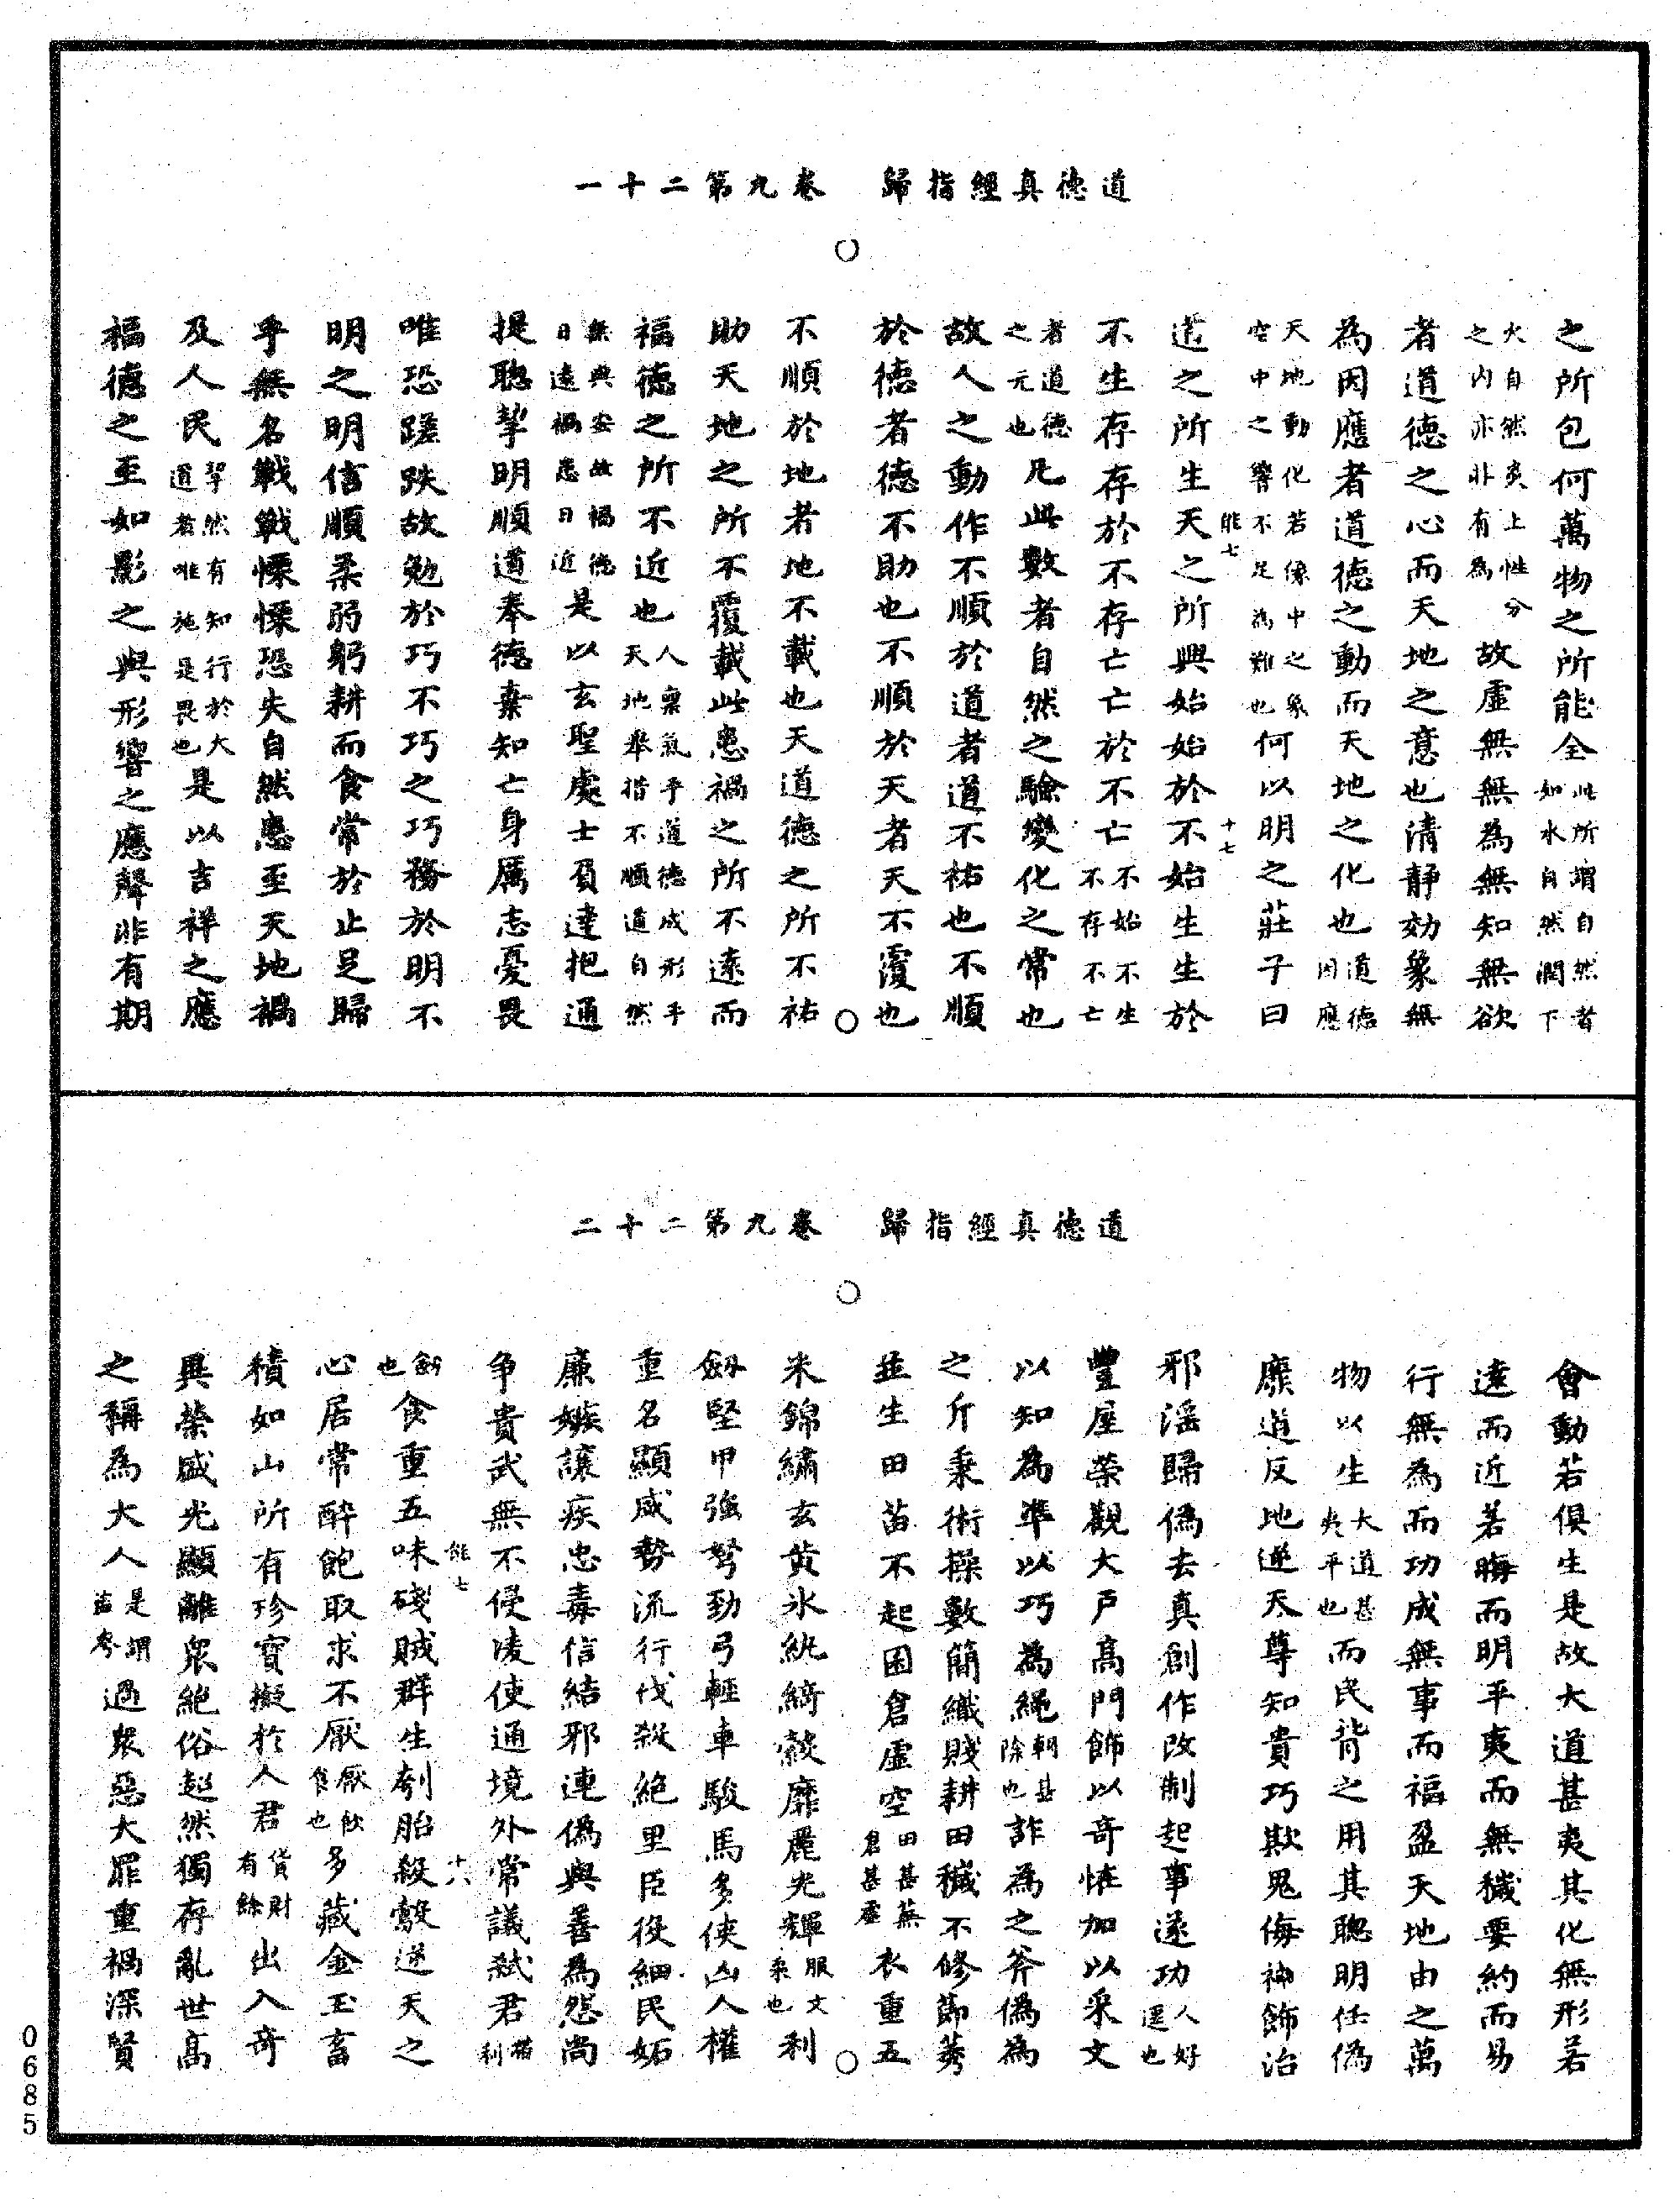 道德真經指歸　卷九第二十一
之所包何萬物之所能全此所謂自然者如水自然潤下
火自然炎上性分之内亦非有為故虛無無為無知無欲
者道德之心而天地之意也清靜効象無
為因應者道德之動而天地之化也道德因應
天地動化若像中之象空中之響不足為難也何以明之莊子曰
能七　十七
道之所生天之所興始始於不始生生於
不生存存於不存亡亡於不亡不始不生不存不亡
者道德之元也凡此數者自然之驗變化之常也
故人之動作不順於道者道不祐也不順
於德者德不助也不順於天者天不覆也
不順於地者地不載也天道德之所不祐
助天地之所不覆載此患禍之所不遠而
福德之所不近也人稟氣乎道德成形乎天地舉措不順道自然
無與安故福德日遠禍患日近是以玄聖處士負達把通
提聰挈明順道奉德棄知亡身厲志憂畏
唯恐蹉跌故勉於巧不巧之巧務於明不
明之明信順柔弱躬耕而食常於止足歸
乎無名戰戰慄慄恐失自然患至天地禍
及人民挈然有知行於大道者唯施是畏也是以吉祥之應
福德之至如影之與形響之應聲非有期
道德真經指歸　卷九第二十二
會動若俱生是故大道甚夷其化無形若
遠而近若晦而明平夷而無穢要約而易
行無為而功成無事而福盈天地由之萬
物以生大道甚夷平也而民背之用其聰明任偽
廢道反地逆天尊知貴巧欺鬼侮神飾治
邪淫歸偽去真創作改制起事遂功人好逕也
豐屋榮觀大戶高門飾以奇怪加以采文
以知為準以巧為繩朝甚除也詐為之斧偽為
之斤秉術操數簡織賤耕田穢不修節莠
並生田苗不起囷倉虛空田甚蕪倉甚虛衣重五
采錦繡玄黃氷紈綺縠靡麗光輝服文采也利
劒堅甲強弩勁弓輕車駿馬多俠凶人權
重名顯威勢流行伐殺絕里臣役細民妬
廉嫉讓疾忠毒信結邪連偽與善為怨尚
争貴武無不侵凌使通境外常議弒君帶利
劒也食重五味殘賊群生刳胎殺鷇逆天之
能七　十八
心居常醉飽取求不厭厭飲食也多藏金玉畜
積如山所有珍寶擬於人君貨財有餘出入奇
異榮盛光顯離衆絕俗超然獨存亂世高
之稱為大人是謂盜夸過衆惡大罪重禍深賢
0685